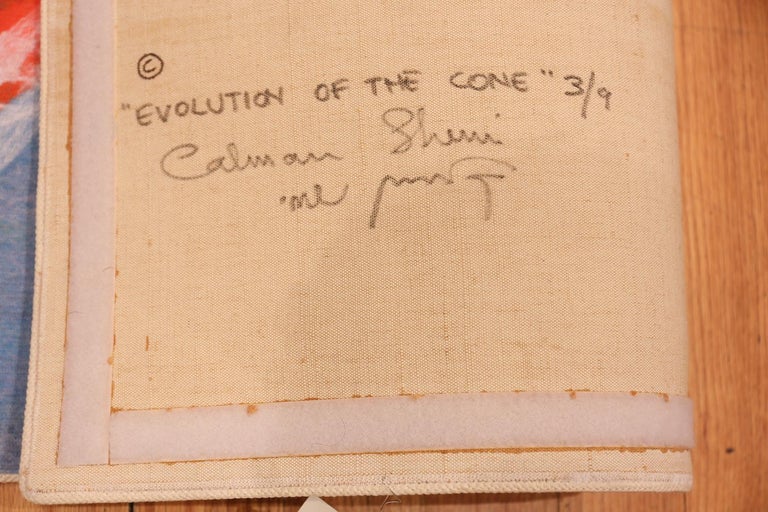 ©
"EVOLUTION OF THE CONE" 3/9
Calman Shemi